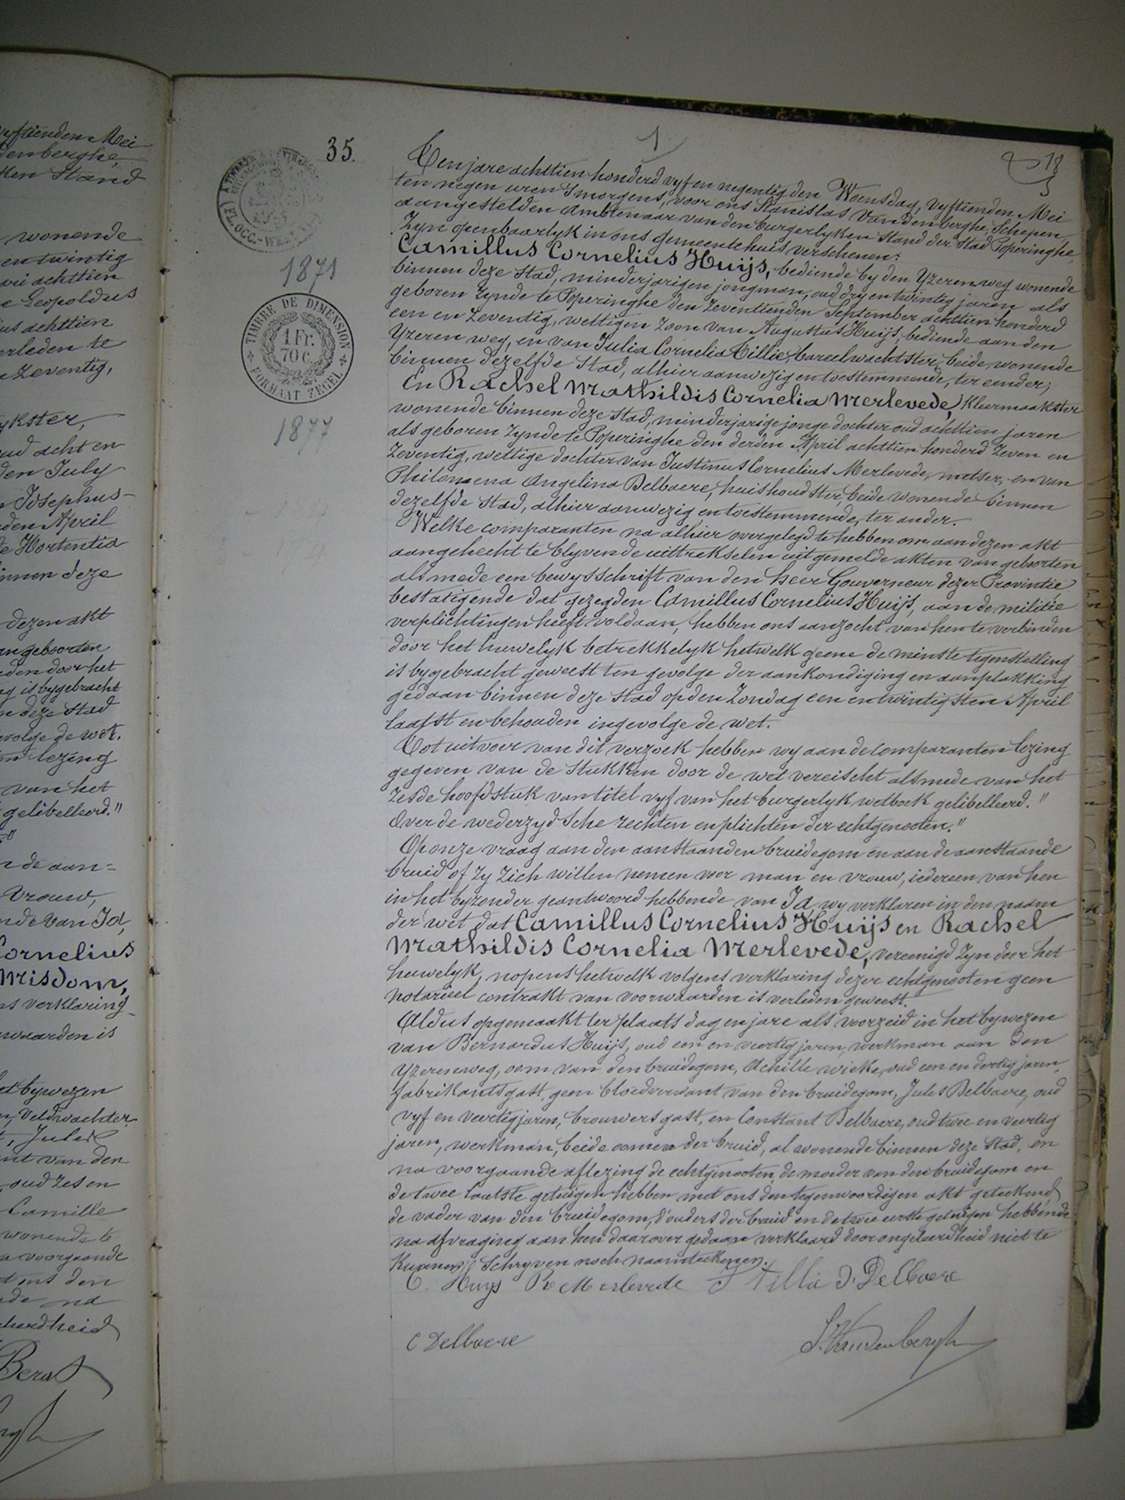 35.
1
18
Ten jare achttien honderd vyf en negentig den Woensdag, vyftienden Mei
ten negen uren 's morgens, voor ons Stanislas Vandenberghe, Schepen
aangestelden ambtenaar van den burgerlyken Stand der Stad Poperinghe
Zyn openbaarlyk in ons gemeentehuis verschenen:
Camillus Cornelius Huijs, bediende by den Yzerenweg wonende
binnen deze Stad, minderjarigen jongman, oud dry en twintig jaren als
geboren zynde te Poperinghe den Zeventienden September achttien honderd
een en Zeventig, wettigen Zoon van Augustus Huijs, bediende aan den
Yzeren weg, en van Julia Cornelia Tillie, bareelwachtster, beide, wonende
binnen dezelfde Stad, alhier aanwezig en toestemmende, ter eender;
En Rachel Mathildis Cornelia Merlevede, Kleermaakster
wonende binnen deze Stad, minderjarige jonge dochter oud achttien jaren
als geboren Zynde te Poperinghe den derden April achttien honderd Zeven en
Zeventig, wettige dochter van Justinus Cornelius Merlevede, metser, en van
Philomena Angelina Delbaere, huishoudster, beide wonende binnen
dezelfde Stad, alhier aanwezig en toestemmende, ter ander.
Welke comparanten na alhier overgelegd te hebben om aan dezen akt
aangehecht te blyven de uittrekselen uit gemelde akten van geboorten
alsmede een bewysschrift van den heer Gouverneur dezer Provintie
bestatigende dat gezegden Camillus Cornelius Huijs, aan de militie
verplichtingen heeft voldaan, hebben ons aanzocht van hen te verbinden
door het huwelyk betrekkelyk hetwelk geene de minste tegenstelling
is bygebracht geweest ten gevolge der aankondiging en aanplakking
gedaan binnen deze Stad op den Zondag een en twintigsten April
laatst en behouden ingevolge de wet.
Tot uitvoer van dit verzoek hebben wy aan de comparanten lezing
gegeven van de Stukken door de wet vereischt alsmede van het
Zesde hoofdstuk van titel vyf van het burgerlyk wetboek gelibelleerd."
Over de wederzydsche rechten en plichten der echtgenooten."
Op onze vraag aan den aanstaanden bruidegom en aan de aanstaande
bruid of Zy Zich willen nemen voor man en vrouw, iedereen van hen
in het byzonder geantwoord hebbende van Ja, wy verklaren in den naam
der wet dat Camillus Cornelius Huijs en Rachel
Mathildis Cornelia Merlevede, vereenigd Zyn door het
huwelyk, nopens hetwelk volgens verklaring dezer echtgenooten geen
notarieel contrakt van voorwaarden is verleden geweest.
Aldus opgemaakt ter plaats dag en jare als voorzeid in het bywezen
van Bernardus Huijs, oud een en veertig jaren, werkman aan den
Yzerenweg, oom van den bruidegom, Achille oud een en dertig jaren,
fabrikantsgast, geen bloedverwant van den bruidegom, Jules Delbaere, oud
vyf en veertig jaren, brouwersgast, en Constant Delbaere, oud twee en veertig
jaren, werkman, beide oomen der bruid, al wonende binnen deze Stad, en
na voorgaande aflezing de echtgenooten, de moeder van den bruidegom en
de twee laatste getuigen hebben met ons den tegenwoordigen akt geteekend,
de vader van den bruidegom, d'ouders der bruid en de twee eerste getuigen hebbende
na afvraging aan hen daarover gedaan verklaard door ongeleerdheid niet te
Kunnen Schryven noch naamteekenen.
C. Huys R Merlevede J Tillie J. Delbaere
C Delbaere S. Vandenberghe
1871
TIMBRE DE DIMENSION
1 Fr.
70 c.
FORMAAT ZEGEL
1877